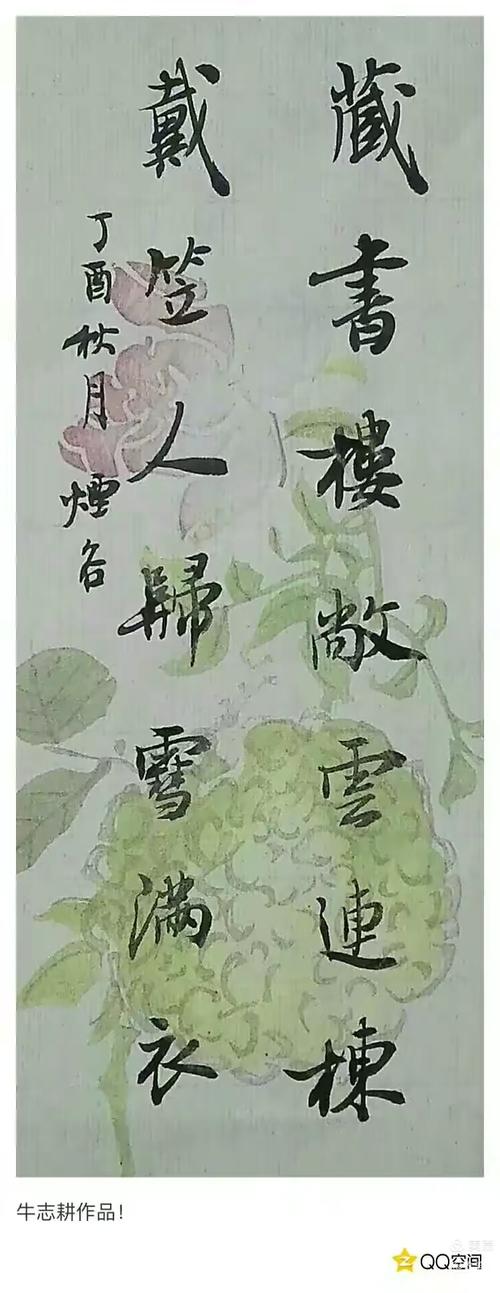 藏書樓敞雲連棟
戴笠人歸雪滿衣
丁酉秋月煙谷
牛志耕作品！
QQ空间